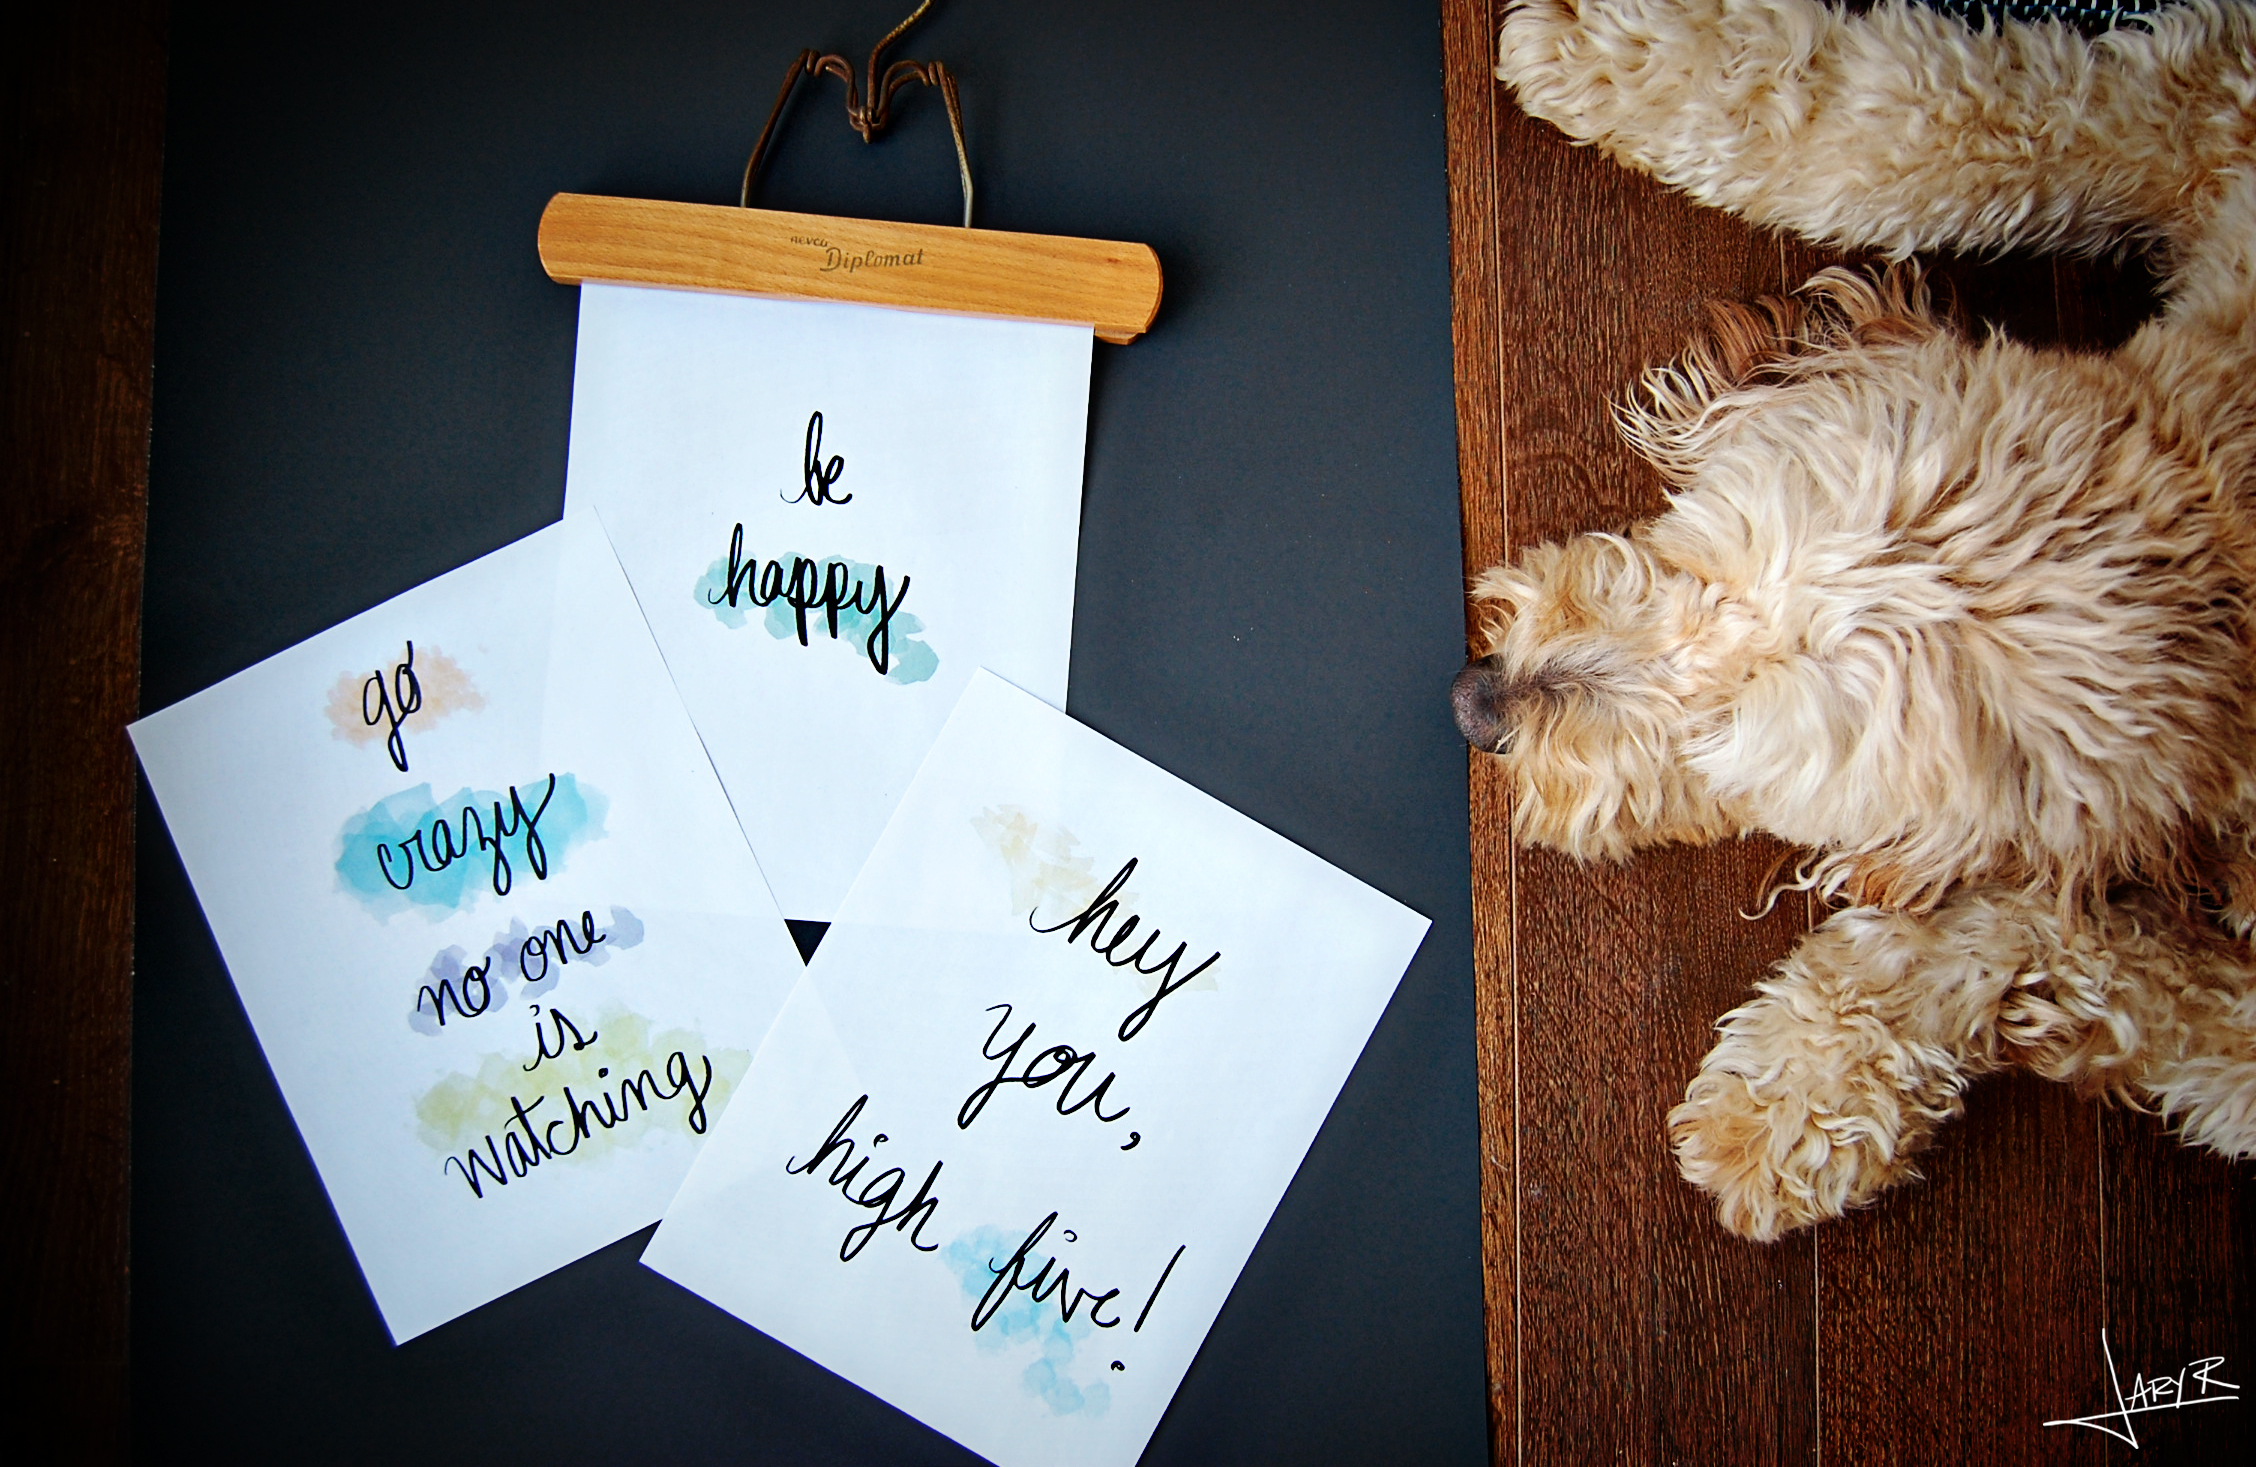 nevco
Diplomat
be
happy
go
crazy
no one
is
watching
hey
you,
high five!
JARYR